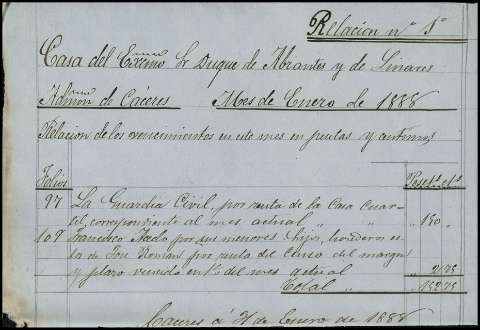 Relacion nº 1º
Casa del Exmo Sr Duque de Abrantes y de Linares
Admon de Cáceres Mes de Enero de 1888
Relacion de los vencimientos en este mes en puntas y
Folios Peset.s ct.s
97 La Guardia Civil por renta de la Casa Cuar-
tel, correspondiente al mes actual " " 150 "
109 Francisco por sus menores hijos, herederos
de Roman por renta del
y plazo vencido en 1º del mes actual " 2,75
Total " " 152,75
Cáceres á 31 de Enero de 1888